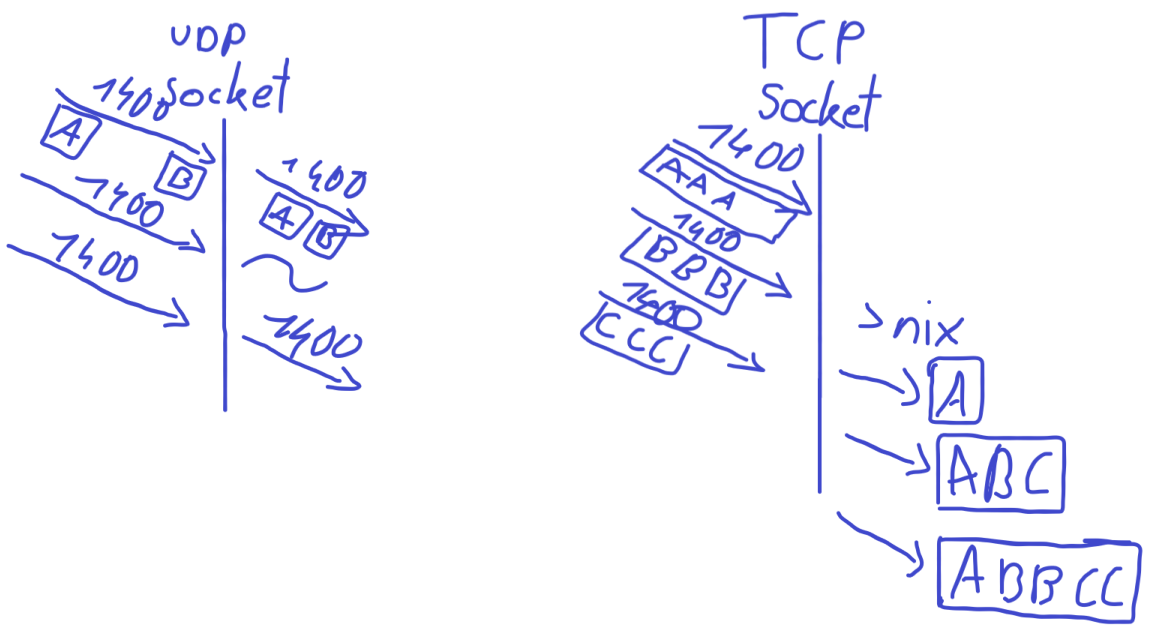 UDP
socket
1400
A
B
1400
1400
1400
A B
1400
TCP
Socket
1400
AAA
1400
BBB
1400
CCC
> nix
A
ABC
ABBCC